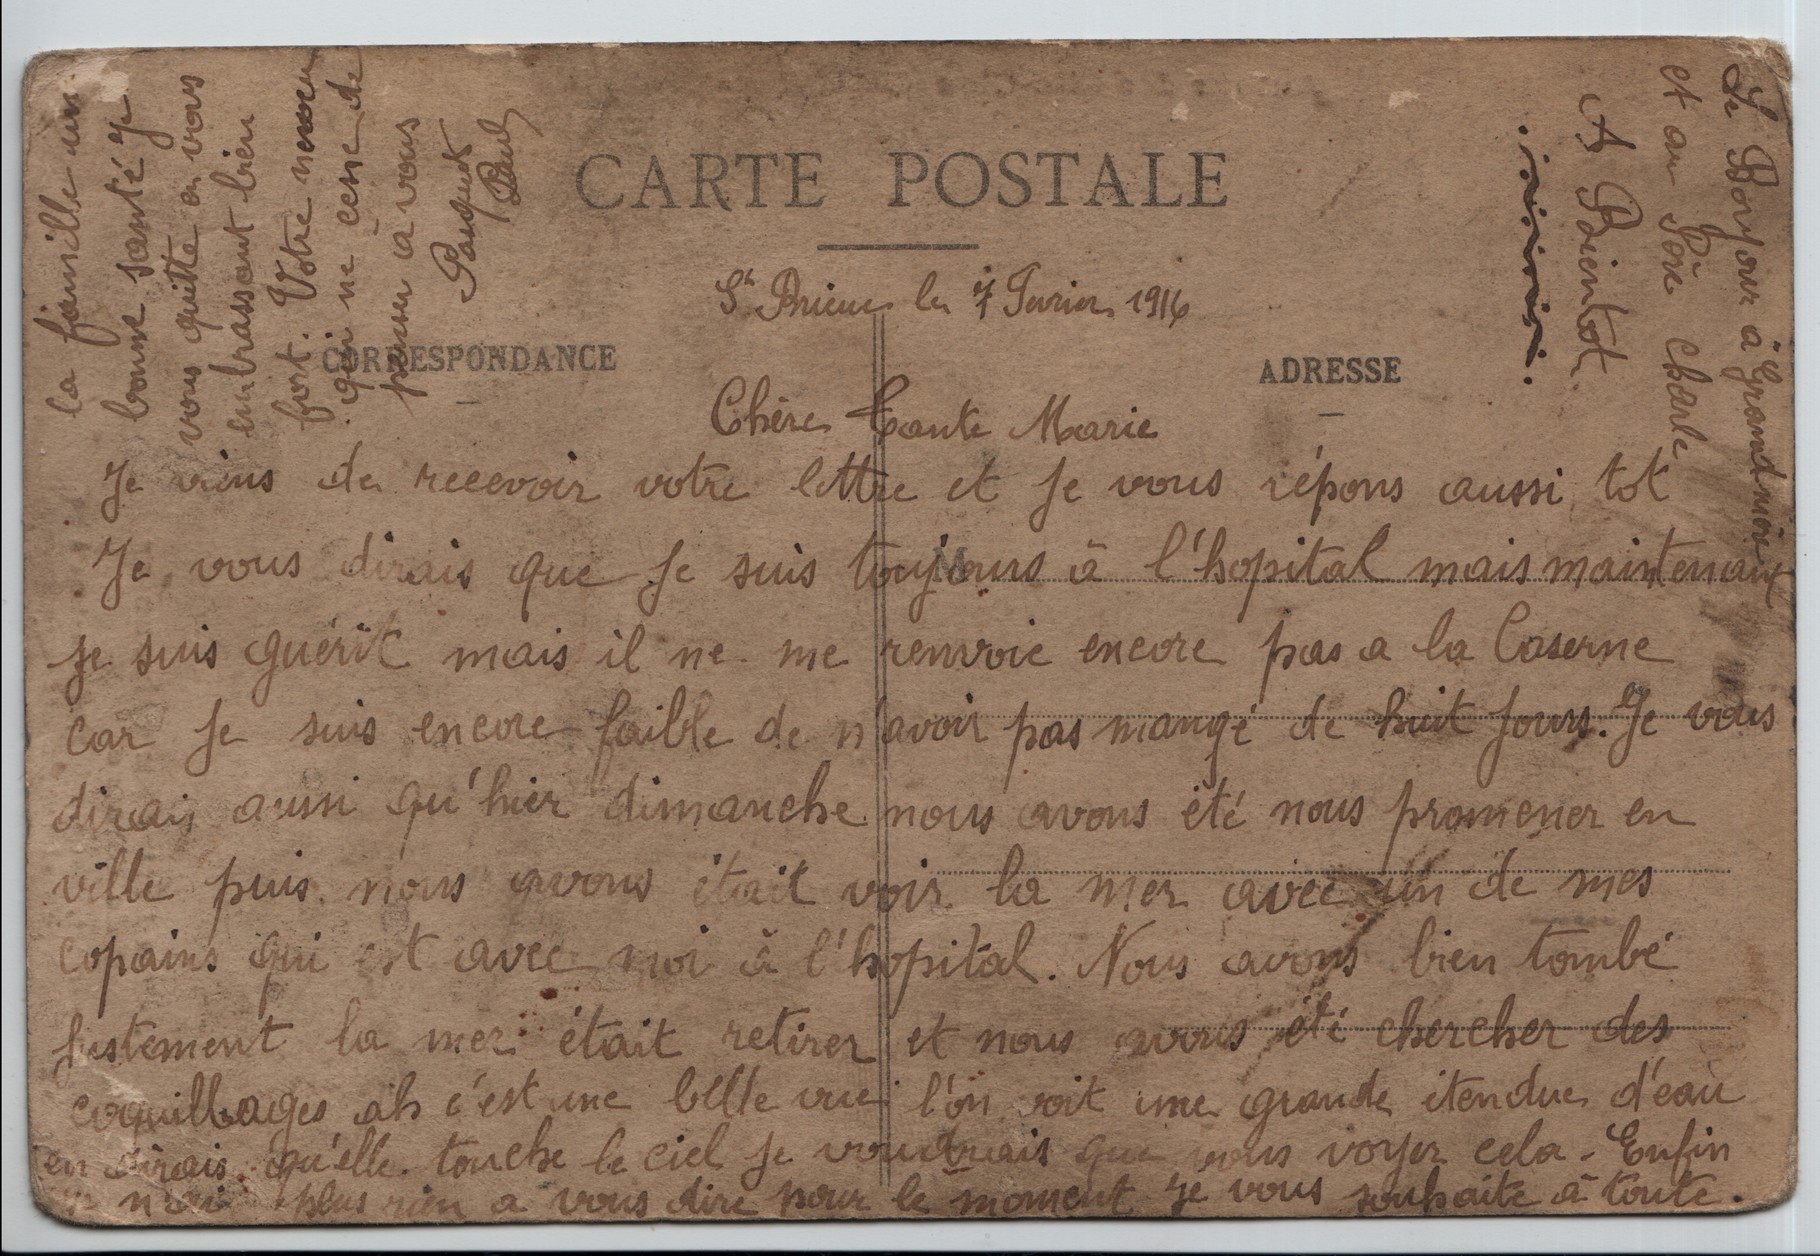 CARTE POSTALE
CORRESPONDANCE
ADRESSE
St Brieuc le 7 Fevrier 1916
Chère Tante Marie
Je viens de recevoir votre lettre et je vous répons aussi tot
Je vous dirais que je suis toujours à l'hopital mais maintenant
je suis guérit mais il ne me renvoie encore pas a la Caserne
car je suis encore faible de n'avoir pas mangé de huit jours. Je vous
dirais aussi qu'hier dimanche nous avons été nous promener en
ville puis nous avons était voir la mer avec un de mes
copains qui est avec moi à l'hopital. Nous avons bien tombé
justement la mer était retirer et nous avons été chercher des
coquillages ah c'est une belle vue l'on voit une grande étendue d'eau
en dirais qu'elle touche le ciel je voudrais que vous voyer cela. Enfin
je n'ai plus rien a vous dire pour le moment je vous souhaite à toute
la famille un
bonne santé je
vous quitte en vous
embrassant bien
fort. Votre neveu
qui ne cesse de
penser à vous
Paul
Le Bonjour à Grandmère
et au Père Charle
A Bientot